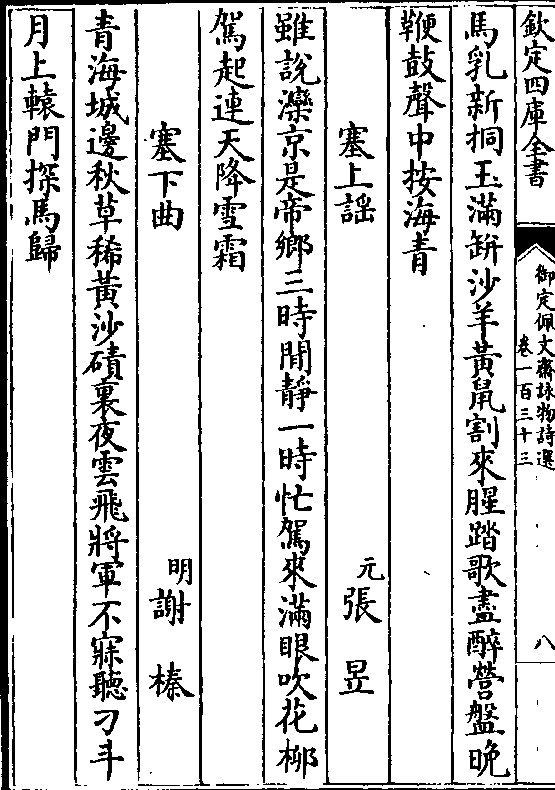 欽定四庫全書
御定佩文齋詠物詩選
卷一百三十三
八
馬乳新挏玉滿缾沙羊黃鼠割來腥踏歌盡醉營盤晚
鞭鼓聲中按海青
塞上謠
元張昱
雖說灤京是帝鄉三時閒靜一時忙駕來滿眼吹花柳
駕起連天降雪霜
塞下曲
明謝榛
青海城邊秋草稀黃沙磧裏夜雲飛將軍不寐聽刁斗
月上轅門探馬歸